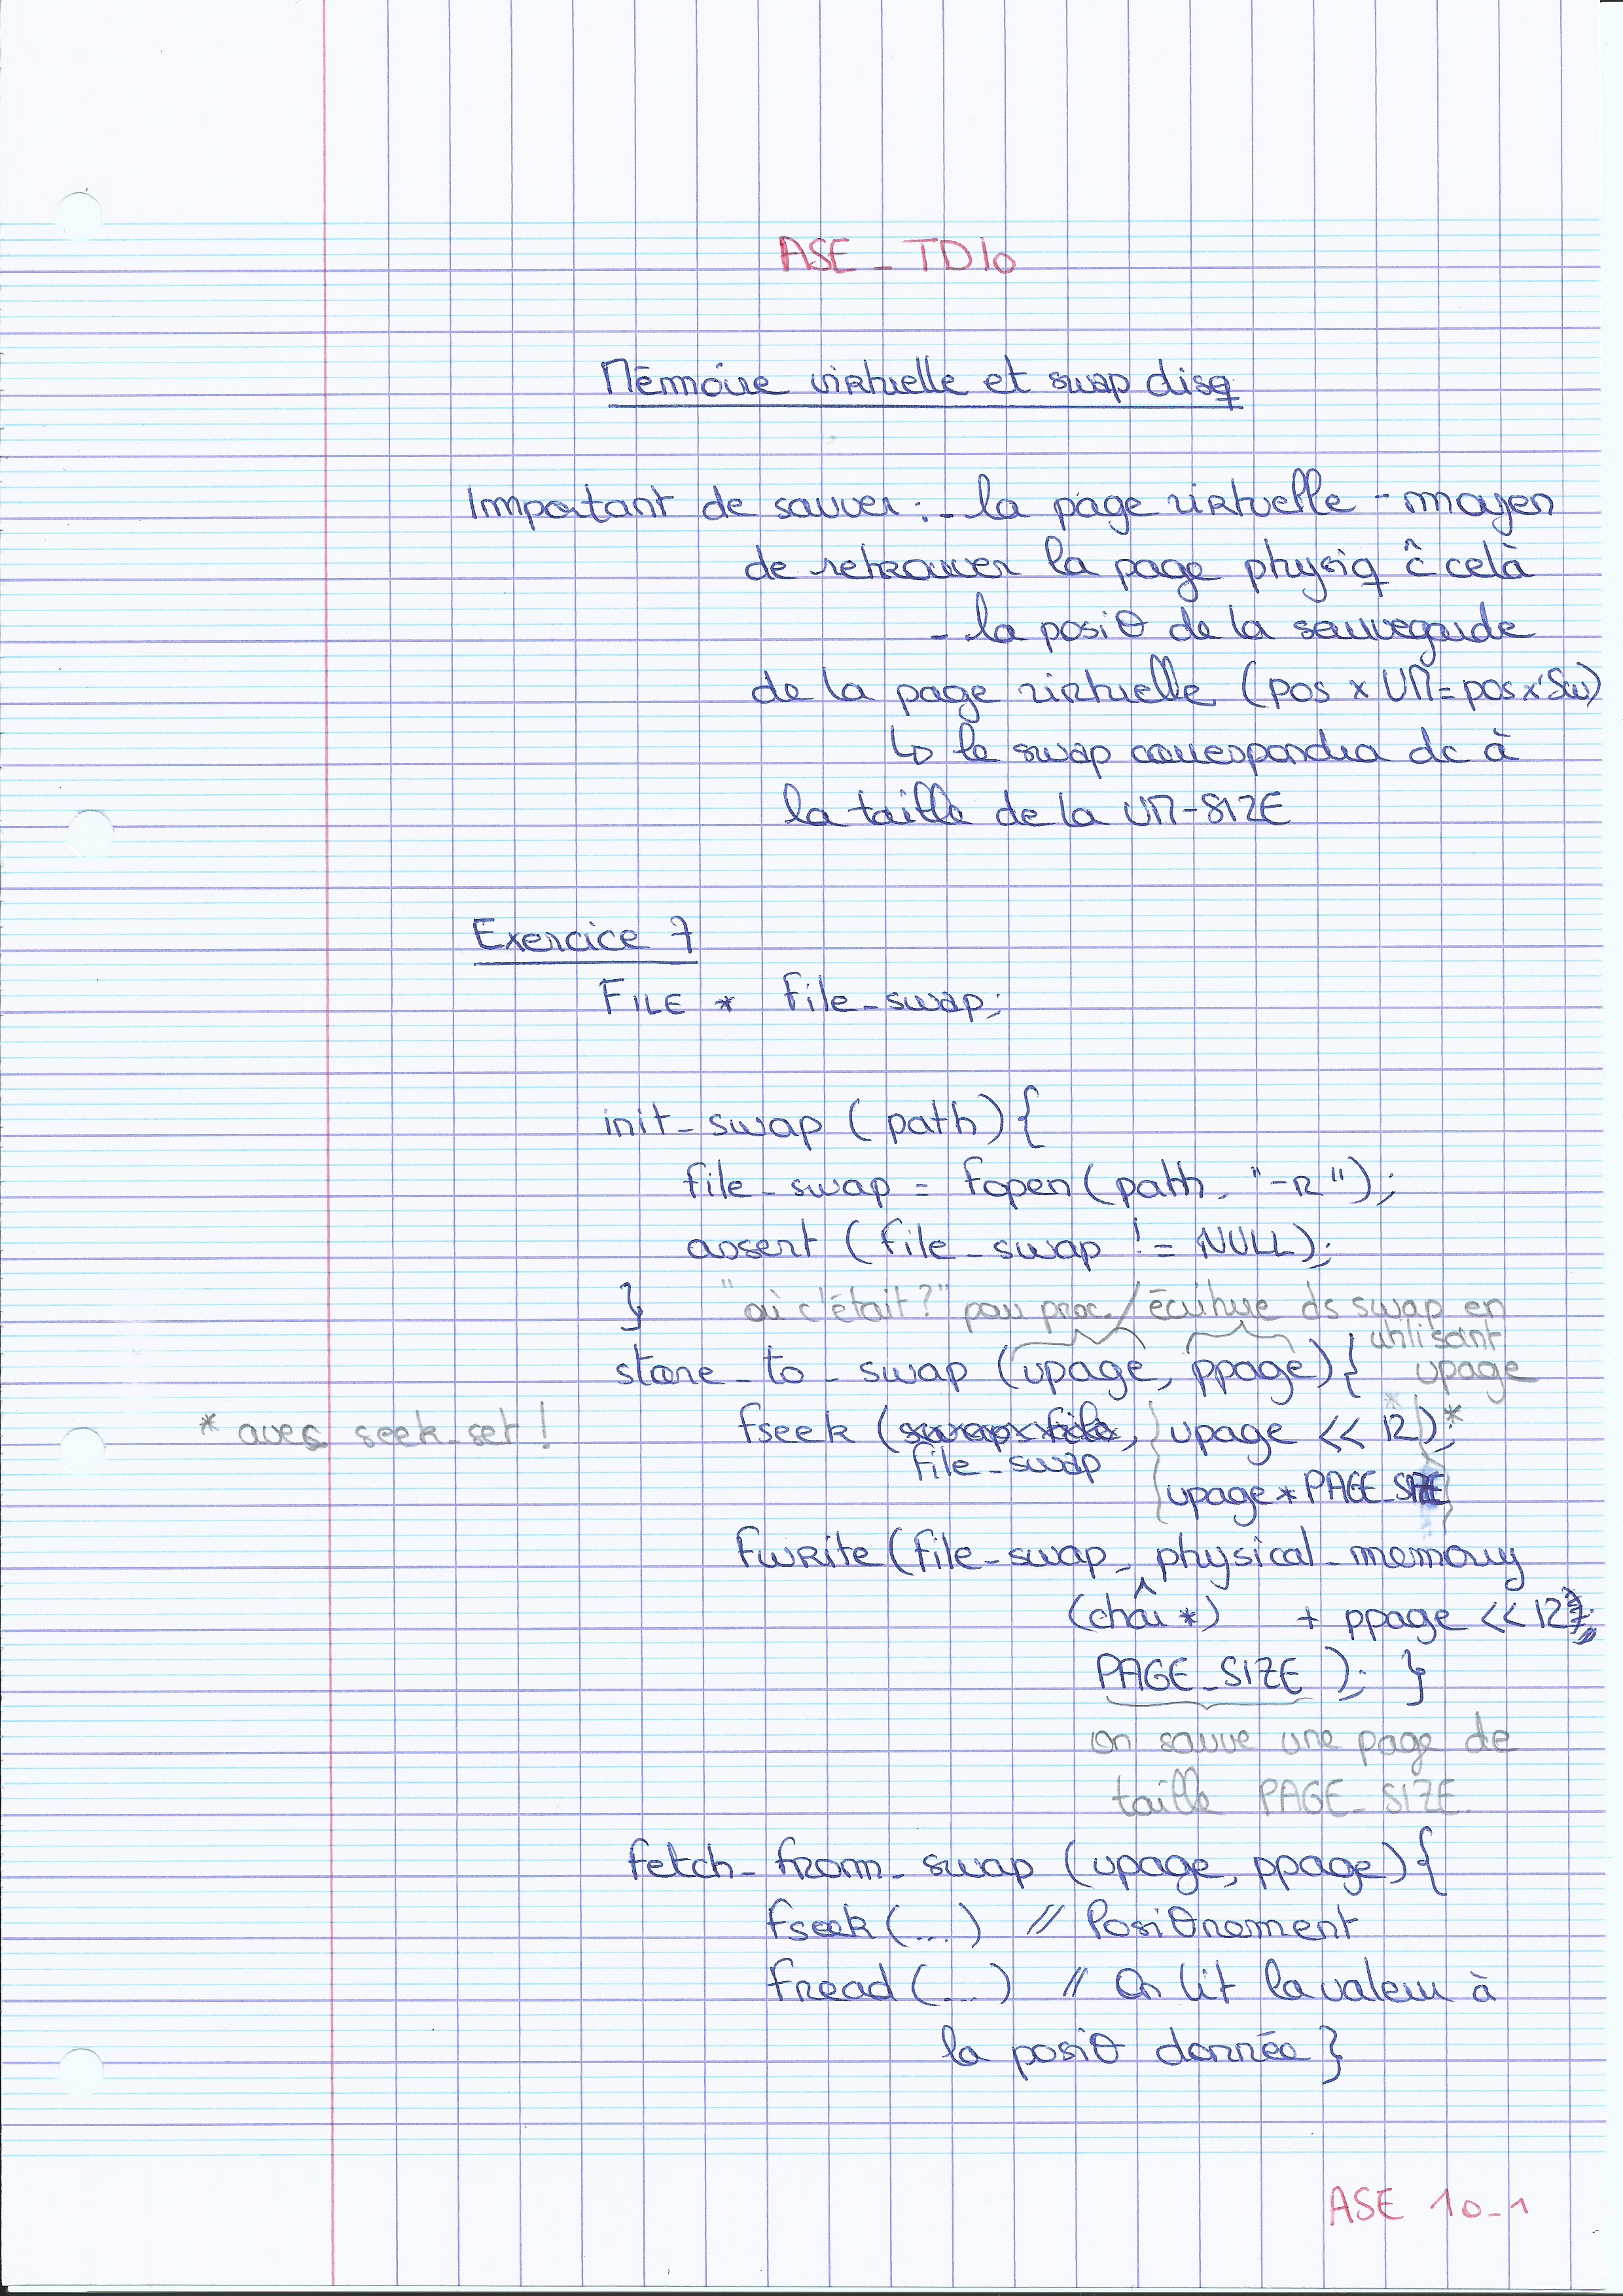 ASE_TD10
Mémoire virtuelle et swap disq
Important de sauver : - la page virtuelle - moyen
de retrouver la page physiq ĉ celà
- la posiθ de la sauvegarde
de la page virtuelle (pos x VM = pos x Sw)
↳ le swap correspondra dc à
la taille de la VM-SIZE
Exercice 7
FILE * file_swap;
init_swap (path){
file_swap = fopen(path, "-r");
assert (file_swap != NULL);
} "où c'était?" pour proc. / écriture ds swap en
utilisant
store_to_swap (vpage, ppage){ vpage
* avec seek_set! fseek (swap_file, vpage << 12);*
file_swap
vpage * PAGE_SIZE
fwrite(file_swap, physical_memory
(char *) + ppage << 12,
PAGE_SIZE ); }
on sauve une page de
taille PAGE_SIZE.
fetch_from_swap (vpage, ppage){
fseek(...) // Posiθnement
fread(...) // On lit la valeur à
la posiθ donnée }
ASE 10-1